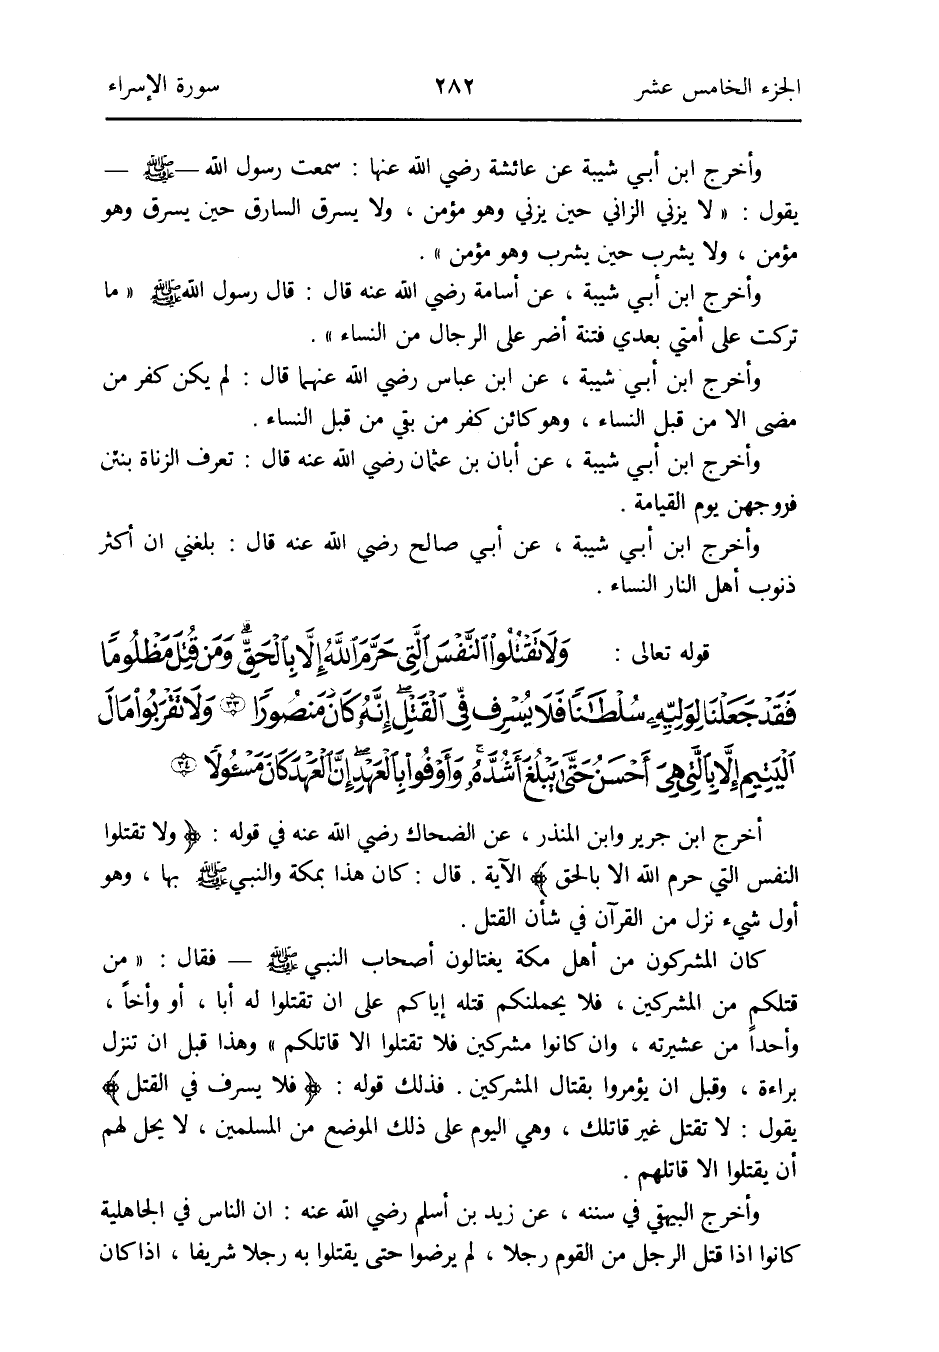 الجزء الخامس عشر ٢٨٢ سورة الإسراء
وأخرج ابن أبي شيبة عن عائشة رضي الله عنها : سمعت رسول الله — ﷺ —
يقول : « لا يزني الزاني حين يزني وهو مؤمن ، ولا يسرق السارق حين يسرق وهو
مؤمن ، ولا يشرب حين يشرب وهو مؤمن » .
وأخرج ابن أبي شيبة ، عن أسامة رضي الله عنه قال : قال رسول الله ﷺ « ما
تركت على أمتي بعدي فتنة أضر على الرجال من النساء » .
وأخرج ابن أبي شيبة ، عن ابن عباس رضي الله عنهما قال : لم يكن كفر من
مضى الا من قبل النساء ، وهو كائن كفر من بقي من قبل النساء .
وأخرج ابن أبي شيبة ، عن أبان بن عثمان رضي الله عنه قال : تعرف الزناة بنتن
فروجهن يوم القيامة .
وأخرج ابن أبي شيبة ، عن أبي صالح رضي الله عنه قال : بلغني ان أكثر
ذنوب أهل النار النساء .
قوله تعالى : وَلَا تَقْتُلُوا۟ ٱلنَّفْسَ ٱلَّتِى حَرَّمَ ٱللَّهُ إِلَّا بِٱلْحَقِّ ۗ وَمَن قُتِلَ مَظْلُومًا
فَقَدْ جَعَلْنَا لِوَلِيِّهِۦ سُلْطَـٰنًا فَلَا يُسْرِف فِّى ٱلْقَتْلِ ۖ إِنَّهُۥ كَانَ مَنصُورًا ﴿٣٣﴾ وَلَا تَقْرَبُوا۟ مَالَ
ٱلْيَتِيمِ إِلَّا بِٱلَّتِى هِىَ أَحْسَنُ حَتَّىٰ يَبْلُغَ أَشُدَّهُۥ ۚ وَأَوْفُوا۟ بِٱلْعَهْدِ ۖ إِنَّ ٱلْعَهْدَ كَانَ مَسْـُٔولًا ﴿٣٤﴾
أخرج ابن جرير وابن المنذر ، عن الضحاك رضي الله عنه في قوله : ﴿ ولا تقتلوا
النفس التي حرم الله الا بالحق ﴾ الآية . قال : كان هذا بمكة والنبي ﷺ بها ، وهو
أول شيء نزل من القرآن في شأن القتل .
كان المشركون من أهل مكة يغتالون أصحاب النبي ﷺ — فقال : « من
قتلكم من المشركين ، فلا يحملنكم قتله إياكم على ان تقتلوا له أبا ، أو وأخاً ،
وأحداً من عشيرته ، وان كانوا مشركين فلا تقتلوا الا قاتلكم » وهذا قبل ان تنزل
براءة ، وقبل ان يؤمروا بقتال المشركين . فذلك قوله : ﴿ فلا يسرف في القتل ﴾
يقول : لا تقتل غير قاتلك ، وهي اليوم على ذلك الموضع من المسلمين ، لا يحل لهم
أن يقتلوا الا قاتلهم .
وأخرج البيهقي في سننه ، عن زيد بن أسلم رضي الله عنه : ان الناس في الجاهلية
كانوا اذا قتل الرجل من القوم رجلا ، لم يرضوا حتى يقتلوا به رجلا شريفا ، اذا كان